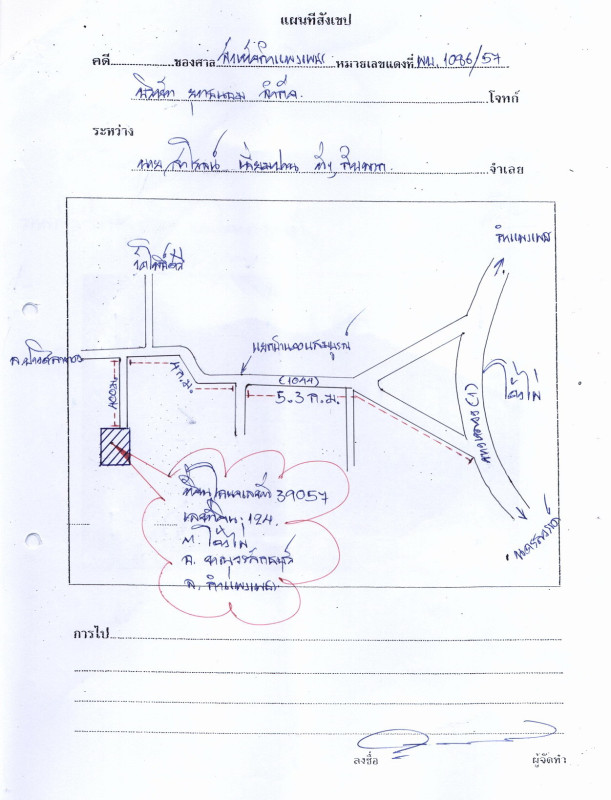 แผนที่สังเขป
คดี ของศาล จังหวัดกำแพงเพชร หมายเลขแดงที่ ผบ. 1086/57
บริษัท จำกัด โจทก์
ระหว่าง
นาย จำเลย
กำแพงเพชร
แยกบ้านคลองสมบูรณ์
(1044)
4 ก.ม.
400 ม.
5.3 ก.ม.
ทางหลวง (1)
โค้งไผ่
นครสวรรค์
ที่ดินโฉนดเลขที่ 39057
เลขที่ดิน 124.
ต. โค้งไผ่
อ. ขาณุวรลักษบุรี
จ. กำแพงเพชร
การไป
ลงชื่อ ผู้จัดทำ